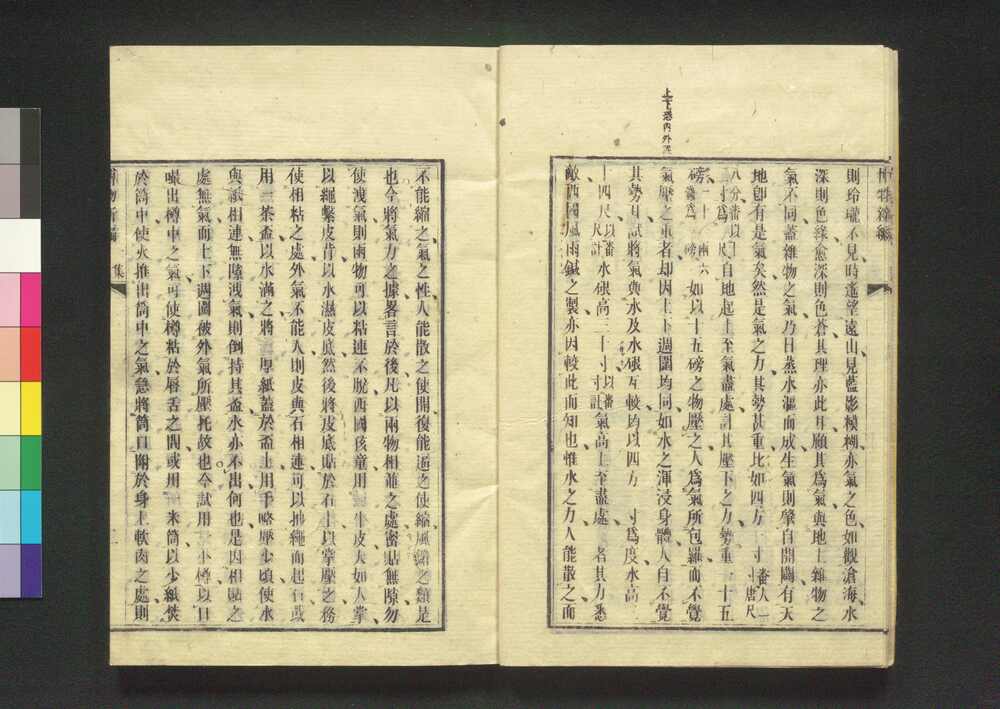 則玲瓏不見時遙望遠山見藍影糢糊亦氣之色如觀滄海水
深則色綠愈深則色蒼其理亦此耳顧其爲氣與地上雜物之
氣不同蓋雜物之氣乃日蒸水漚而成生氣則肇自開闢有天
地卽有是氣矣然是氣之力其勢甚重比如四方一寸番人一寸唐尺
八分番以 寸爲 尺自地起上至氣盡處計其壓下之力勢重一十五
磅一十 兩六 錢爲 磅如以十五磅之物壓之人爲氣所包羅而不覺
氣壓之重者却因上下週圍均同如水之渾浸身體人自不覺
其勢耳試將氣與水及水硍互較均以四方一寸爲度水高三
十四尺以番尺計水硍高三十寸以番寸計氣高上至盡處 者其力悉
敵西國風雨鍼之製亦因較此而知也惟水之力人能散之而
上下恐內外
不能縮之氣之性人能散之使開復能逼之使縮風鎗之類是
也今將氣力之據畧言於後凡以兩物相兼之處密貼無隙勿
使洩氣則兩物可以粘連不脫西國孩童用 牛皮大如人掌
以繩繫皮背以水濕皮底然後將皮底貼於石上以掌壓之務
使相粘之處外氣不能入則皮與石相連可以抽繩而起石或
用一茶盃以水滿之將 厚紙蓋於盃上用手略壓少頃使水
與紙相連無隙洩氣則倒持其盃水亦不出何也是因相貼之
處無氣而上下週圍被外氣所壓托故也今試用 小樽以口
嘬出樽中之氣可使樽粘於唇舌之間或用 米筒以少紙焚
於筒中使火推出筒中之氣急將筒口附於身上軟肉之處則
博物新編 集